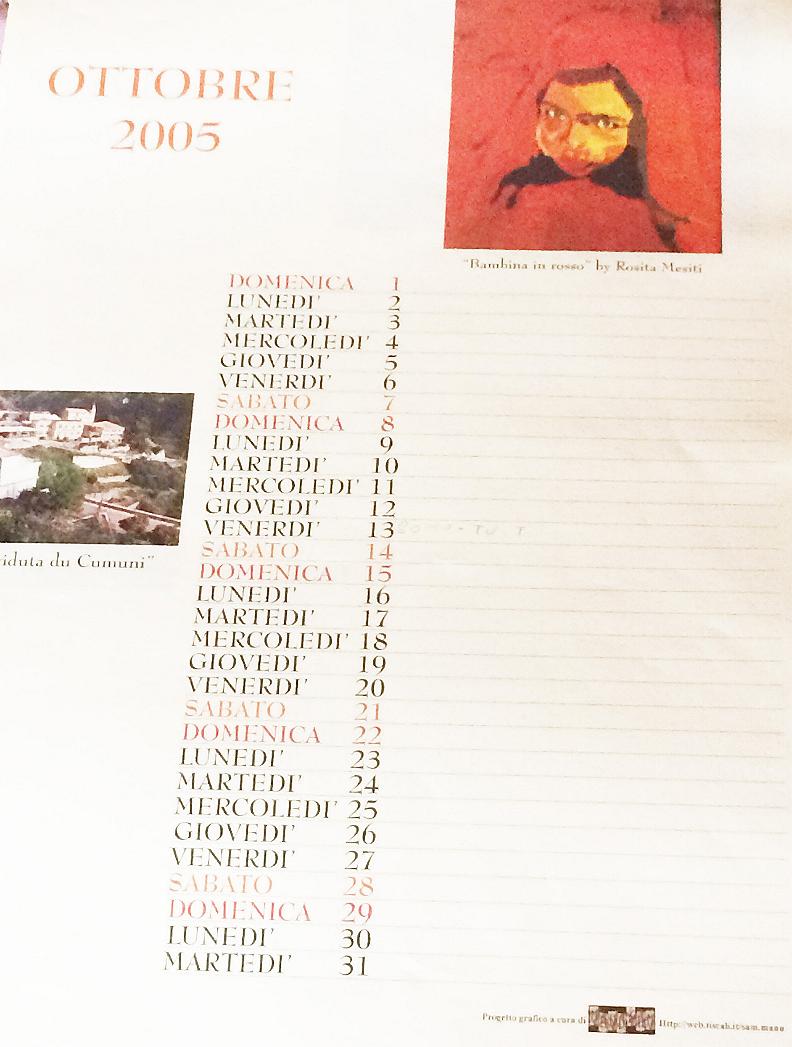 OTTOBRE
2005
"Bambina in rosso" by Rosita Mesiti
DOMENICA 1
LUNEDI' 2
MARTEDI' 3
MERCOLEDI' 4
GIOVEDI' 5
VENERDI' 6
SABATO 7
DOMENICA 8
LUNEDI' 9
MARTEDI' 10
MERCOLEDI' 11
GIOVEDI' 12
VENERDI' 13
SABATO 14
DOMENICA 15
LUNEDI' 16
MARTEDI' 17
MERCOLEDI' 18
GIOVEDI' 19
VENERDI' 20
SABATO 21
DOMENICA 22
LUNEDI' 23
MARTEDI' 24
MERCOLEDI' 25
GIOVEDI' 26
VENERDI' 27
SABATO 28
DOMENICA 29
LUNEDI' 30
MARTEDI' 31
du Cumuni"
Progetto grafico a cura di